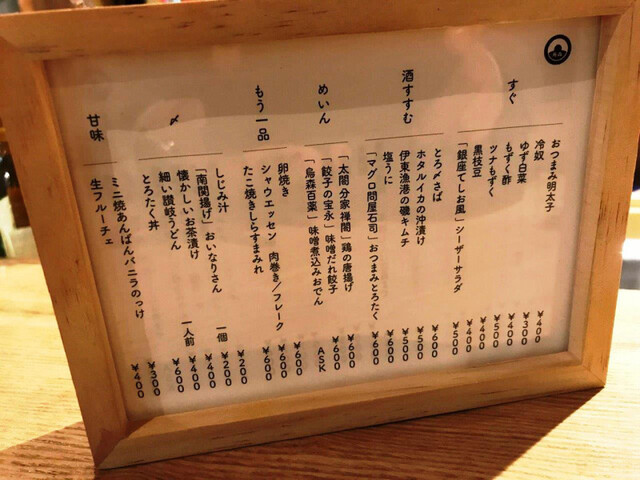 すぐ
おつまみ明太子 ¥400
冷奴 ¥300
ゆず白菜 ¥400
もずく酢 ¥500
ツナもずく ¥400
黒枝豆 ¥400
「銀座てしお風」シーザーサラダ ¥500
酒すすむ
とろ〆さば ¥600
ホタルイカの沖漬け ¥500
伊東漁港の磯キムチ ¥500
塩うに ¥600
「マグロ問屋石司」おつまみとろたく ¥600
めいん
「太閤分家禅閣」鶏の唐揚げ ¥600
「餃子の宝永」味噌だれ餃子 ¥600
「烏森百薬」味噌煮込みおでん ASK
もう一品
卵焼き ¥600
シャウエッセン 肉巻き／フレーク ¥600
たこ焼きしらすまみれ ¥600
〆
しじみ汁 ¥200
「南関揚げ」おいなりさん 一個 ¥200
懐かしいお茶漬け ¥400
細い讃岐うどん 一人前 ¥400
とろたく丼 ¥600
甘味
ミニ焼あんぱんバニラのっけ ¥300
生フルーチェ ¥400